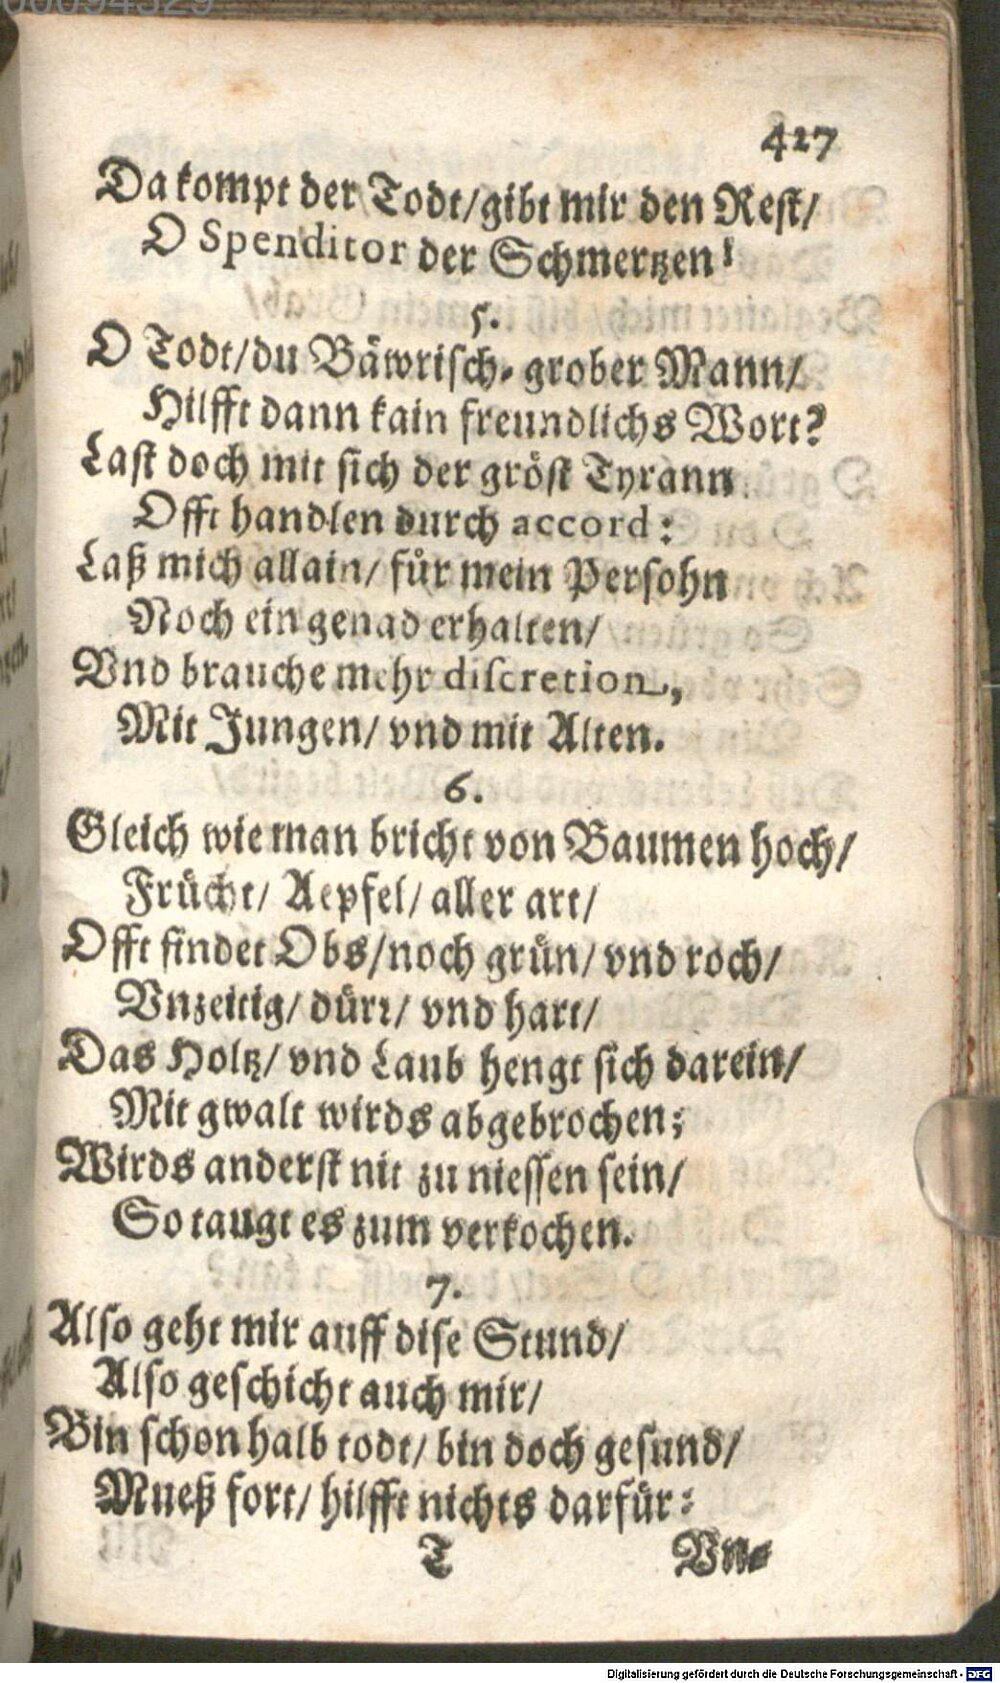 427
Da kompt der Todt/gibt mir den Rest/
O Spenditor der Schmertzen!
5.
O Todt/du Bäwrisch-grober Mann/
Hilfft dann kain freundlichs Wort?
Last doch mit sich der gröst Tyrann
Offt handlen durch accord:
Laß mich allain/ für mein Persohn
Noch ein genad erhalten/
Vnd brauche mehr discretion,
Mit Jungen/ vnd mit Alten.
6.
Gleich wie man bricht von Baumen hoch/
Frücht/ Aepfel/ aller art/
Offt findet Obs/noch grün/ vnd roch/
Vnzeitig/ dürr/ vnd hart/
Das Holtz/ vnd Laub hengt sich darein/
Mit gwalt wirds abgebrochen;
Wirds anderst nit zu niessen sein/
So taugt es zum verkochen.
7.
Also geht mir auff dise Stund/
Also geschicht auch mir/
Bin schon halb todt/ bin doch gesund/
Mueß fort/ hilfft nichts darfür:
T Vn-
Digitalisierung gefördert durch die Deutsche Forschungsgemeinschaft - DFG